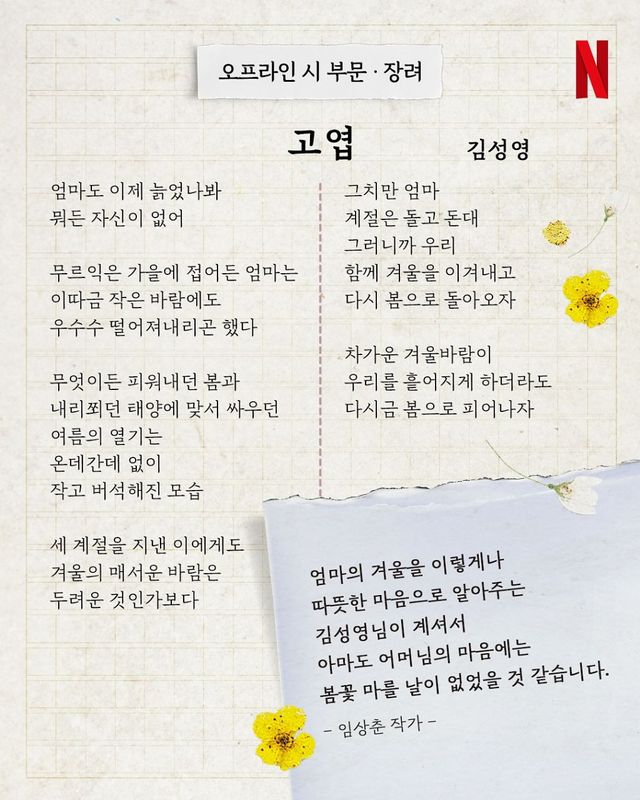 오프라인 시 부문 · 장려
N
고엽
김성영
엄마도 이제 늙었나봐
뭐든 자신이 없어
무르익은 가을에 접어든 엄마는
이따금 작은 바람에도
우수수 떨어져내리곤 했다
무엇이든 피워내던 봄과
내리쬐던 태양에 맞서 싸우던
여름의 열기는
온데간데 없이
작고 버석해진 모습
세 계절을 지낸 이에게도
겨울의 매서운 바람은
두려운 것인가보다
그치만 엄마
계절은 돌고 돈대
그러니까 우리
함께 겨울을 이겨내고
다시 봄으로 돌아오자
차가운 겨울바람이
우리를 흩어지게 하더라도
다시금 봄으로 피어나자
엄마의 겨울을 이렇게나
따뜻한 마음으로 알아주는
김성영님이 계셔서
아마도 어머님의 마음에는
봄꽃 마를 날이 없었을 것 같습니다.
– 임상춘 작가 –